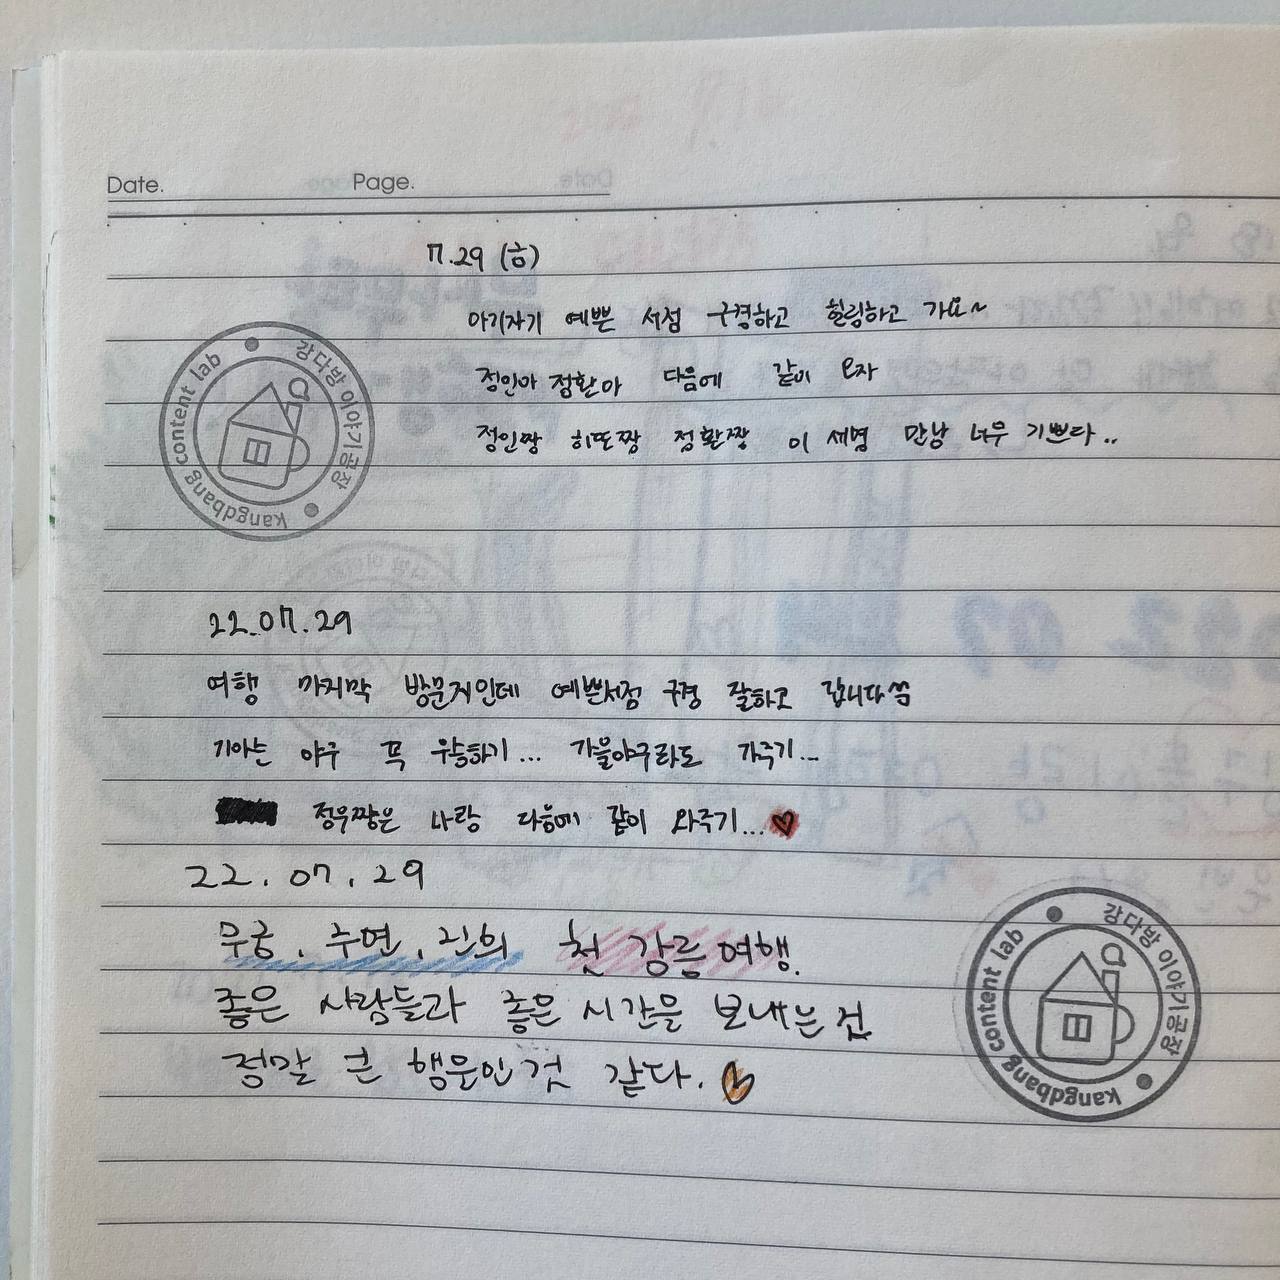 Date. Page.
7.29 (금)
아기자기 예쁜 서점 구경하고 힐링하고 가요~
정인아 정환아 다음에 같이 오자
정인짱 히또짱 정환짱 이 세명 만남 너무 기쁘다..
강다방 이야기공장
kangdbang content lab
22.07.29
여행 마지막 방문지인데 예쁜서점 구경 잘하고 갑니다
기아는 야구 꼭 우승하기... 가을야구라도 가주기...
정우짱은 나랑 다음에 같이 와주기...
22.07.29
무궁, 주연, 진의 첫 강릉여행.
좋은 사람들과 좋은 시간을 보내는건
정말 큰 행운인 것 같다.
강다방 이야기공장
kangdbang content lab